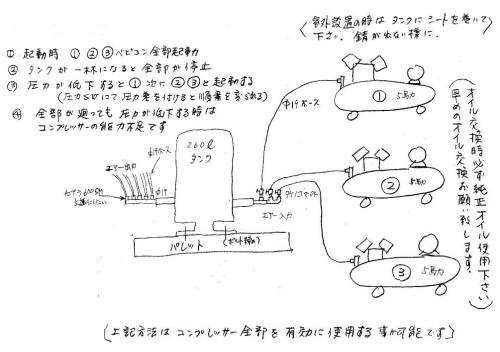 室外設置の時は タンクにシートを巻いて
下さい. 錆が出ない様に.
① 起動時 ①②③ベビコン全部起動
② タンクが一杯になると全部が停止
③ 圧力が低下すると①次に②③と起動する
(圧力SWにて圧力差を付けると順番を変られる)
④ 全部が廻っても圧力が低下する時は
コンプレッサーの能力不足です
φ19ホース
① 5馬力
② 5馬力
③ 5馬力
260ℓ
タンク
エアー出力
φ19ホース
φ19
エアー入力
パレット
オイル交換時必ず純正オイル使用下さい
早めのオイル交換お願い致します.
(上記方法はコンプレッサー全部を有効に使用する事が可能です)